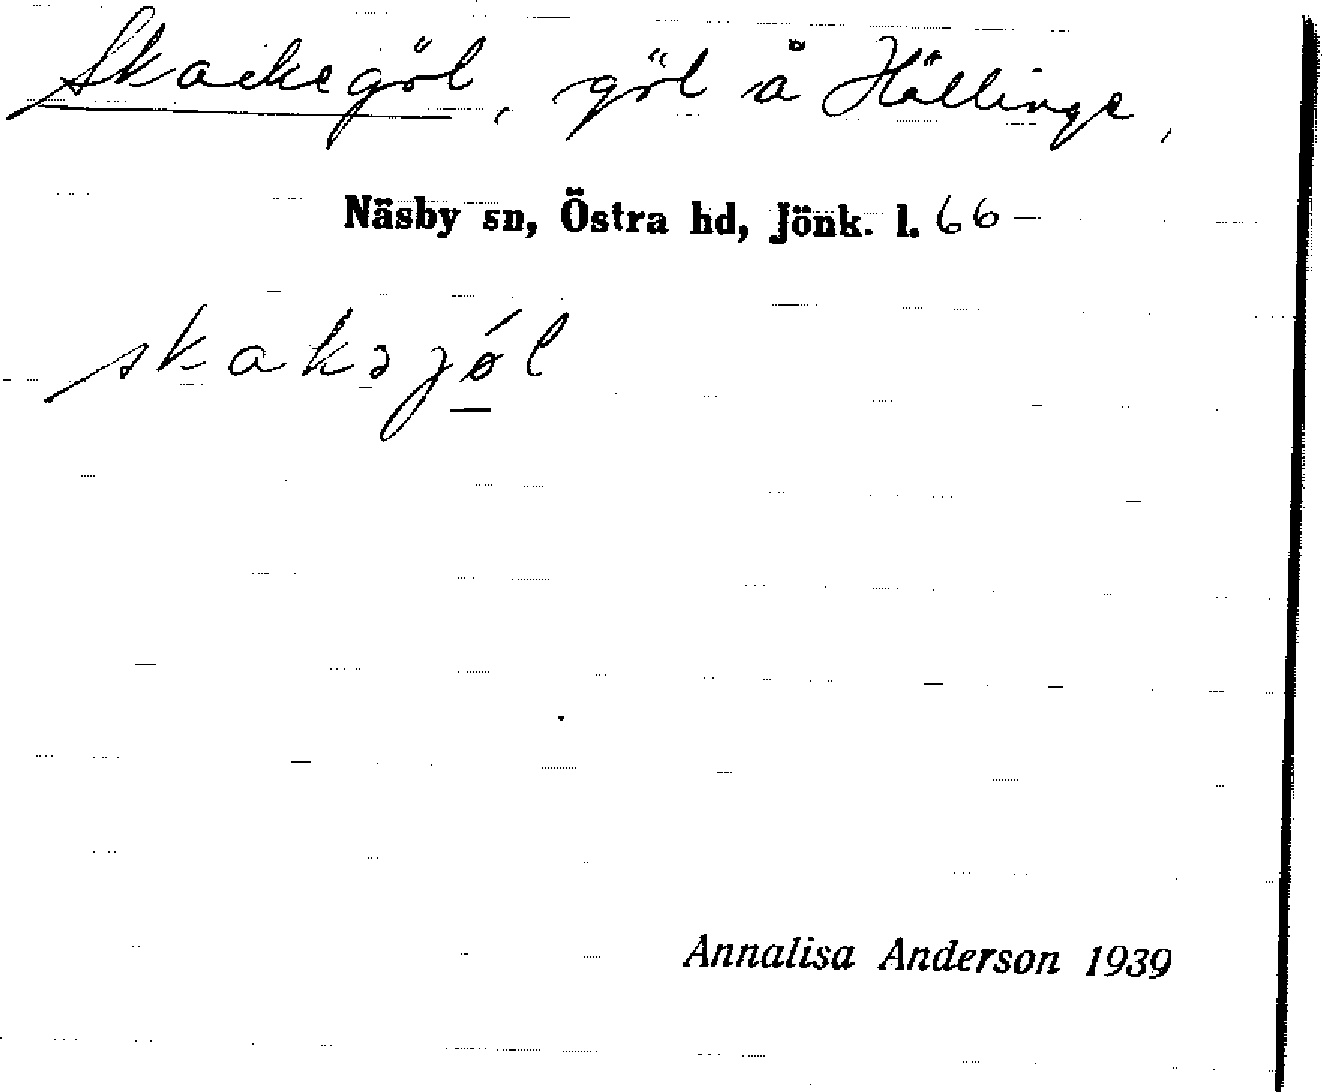 Skackegöl, göl å Hällinge,
Näsby sn, Östra hd, Jönk. l. 66 –
skakəjǿl
Annalisa Anderson 1939